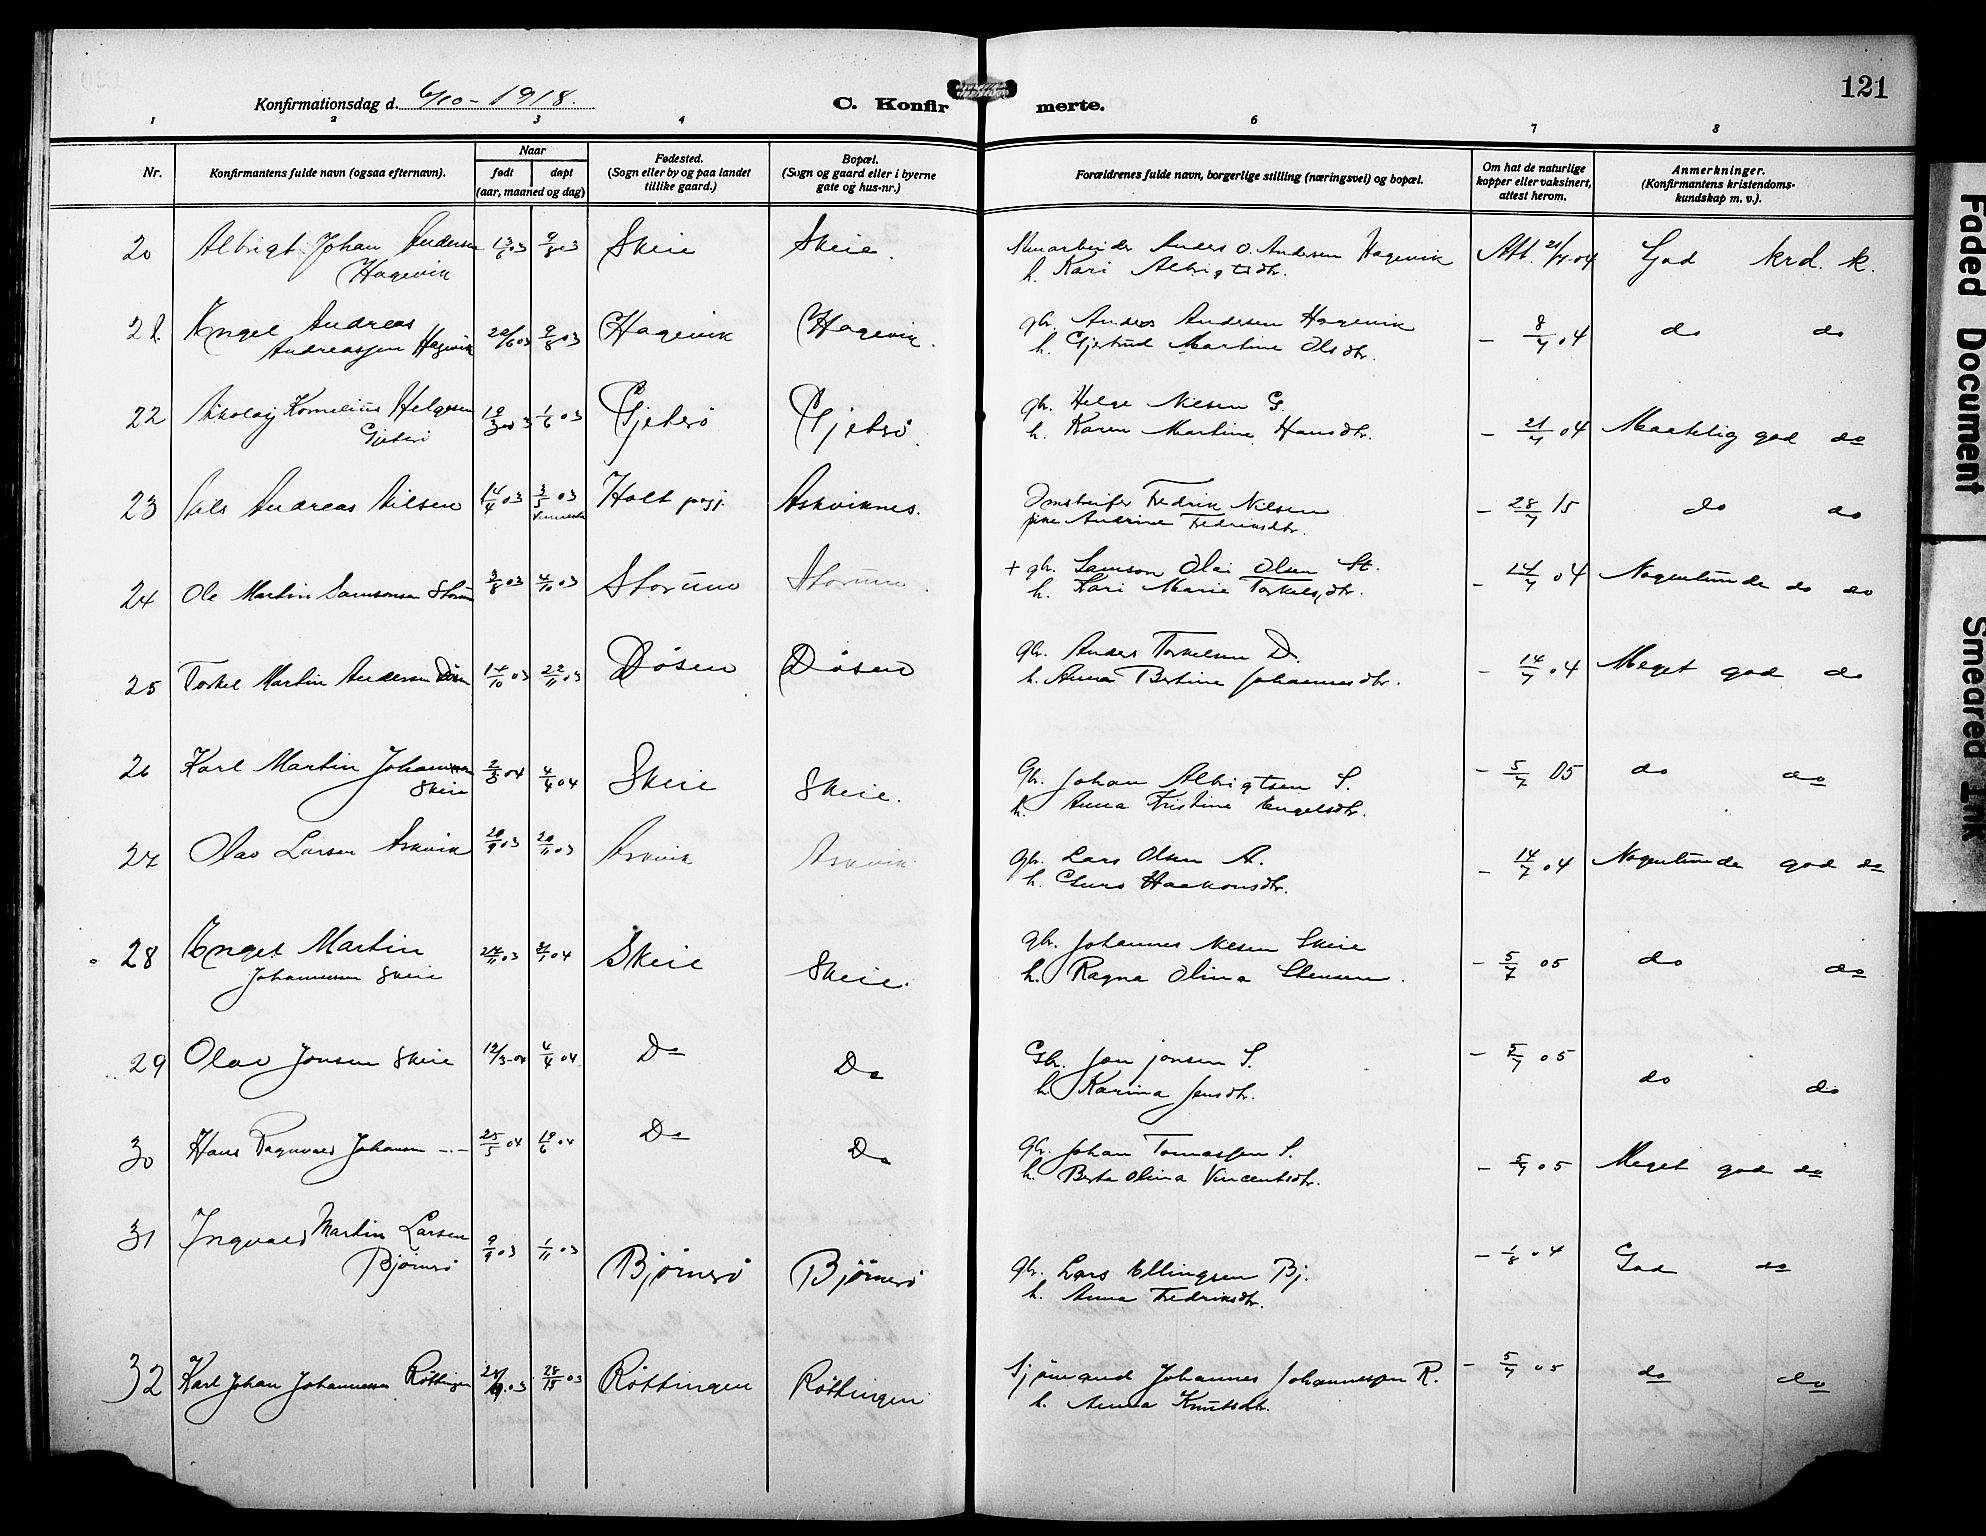 Konfirmationsdag d. 6/10 - 1918.
C. Konfirmerte.
121
1 2 3 4 6 7 8
Nr.
Konfirmantens fulde navn (ogsaa efternavn).
Naar
født døpt
(aar, maaned og dag)
Fødested.
(Sogn eller by og paa landet
tillike gaard.)
Bopæl.
(Sogn og gaard eller i byerne
gate og hus-nr.)
Forældrenes fulde navn, borgerlige stilling (næringsvei) og bopæl.
Om hat de naturlige
kopper eller vaksinert,
attest herom.
Anmerkninger.
(Konfirmantens kristendoms-
kundskap m. v.).
20 Albrigt Johan Andersen Skeie Skeie. Anders O. Andersen Hagevik Att. God krd. k.
Hagevik h. Kari Albrigtsdtr.
21 Engel Andreas 9/8 03 Hagevik Hagevik. gbr. Anders Andersen Hagevik - 8/7 04 do do
Andreassen Hagevik h. Gjertrud Martine Olsdtr.
22 Nikolay Kornelius Helgesen 1/6 03 Gjeterø Gjeterø. gbr. Helge Nilsen G. - 21/7 04 Maatelig god do
Gjeterø h. Karen Martine Hansdtr.
23 Nils Andreas Nilsen 14/4 03 3/5 03 Holt Askviknes. Fredrik Nilsen - 28/7 15 do do
pike Andrine Fredriksdtr.
24 Ole Martin Samsonsen Storum 3/8 03 4/10 03 Storum Storum + gbr. Samson Olai Olsen St. - 14/7 04 Nogenlunde do do
h. Kari Marie Torkelsdtr.
25 Torkel Martin Andersen Døsen 14/10 03 22/11 03 Døsen Døsen gbr. Anders Torkelsen D. - 14/7 04 Meget god do
h. Anna Bertine Johannesdtr.
26 Karl Martin Johansen 2/3 04 4/4 04 Skeie Skeie. Gbr. Johan Albrigtsen S. - 5/7 05 do do
Skeie h. Anna Kristine Engelsdtr.
27 Olav Larsen Askvik 20/9 03 Askvik Askvik. Gbr. Lars Olsen A. - 14/7 04 Nogenlunde god do
h. Guro Haakonsdtr.
28 Engel Martin Skeie Skeie. gbr. Johannes Nilsen Skeie - 5/7 05 do do
Johannessen Skeie h. Ragna Olina Stensen.
29 Olav Jonsen Skeie 4/4 04 Do Do Gbr. Jon Jonsen S. - 5/7 05 do do
h. Karina Jensdtr.
30 Hans Ragnvald Johansen -"- 25/5 04 19/6 04 Do Do Gbr. Johan Tomassen S. - 5/7 05 Meget god do
h. Berta Olina Vincentsdtr.
31 Ingvald Martin Larsen 9/9 03 1/11 03 Bjørnerø Bjørnerø gbr. Lars Ellingsen Bj. - 1/8 04 God do
Bjørnerø h. Anna Fredriksdtr.
32 Karl Johan Johannessen Røttingen Røttingen Røttingen Sjømand Johannes Johannessen R. - 5/7 05 do do
h. Anna Knutsdtr.
Faded Document
Smeared Ink